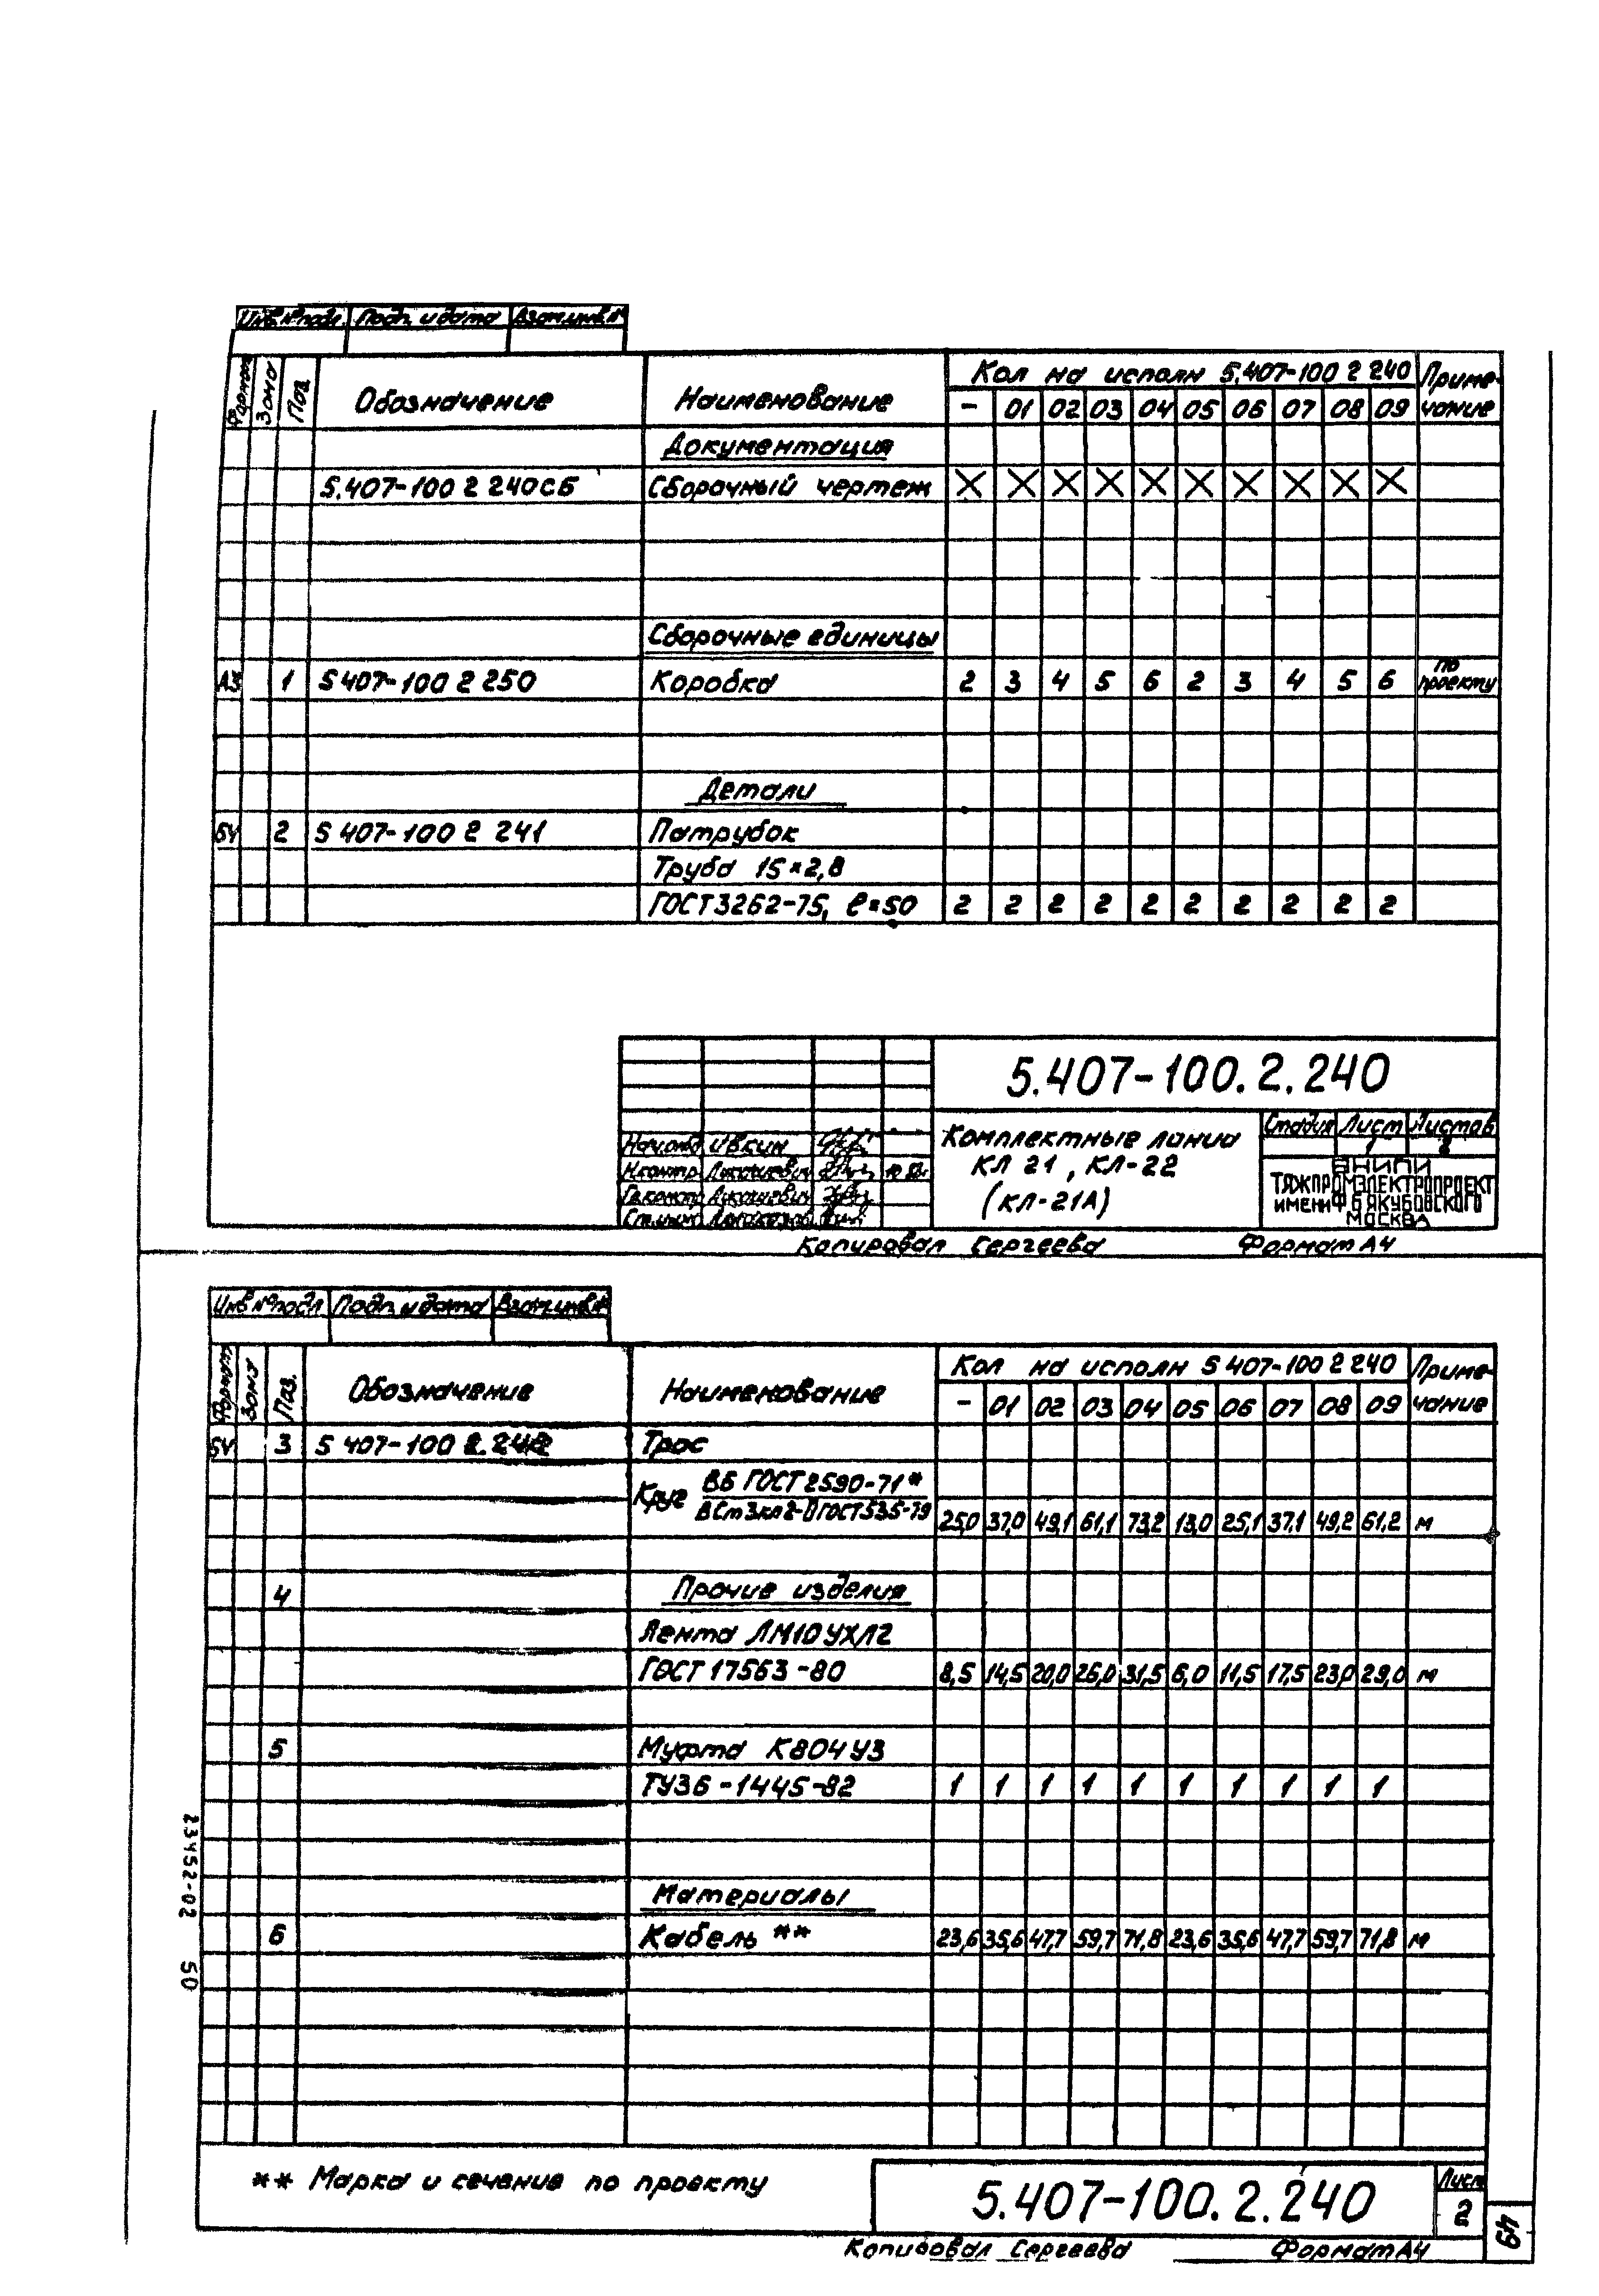 Инв № подл. Подп. и дата Взам. инв №
Формат Зона Поз. Обозначение Наименование Кол на исполн 5.407-100 2 240 Приме-
чание
- 01 02 03 04 05 06 07 08 09
Документация
5.407-100 2 240СБ Сборочный чертеж X X X X X X X X X X
Сборочные единицы
А3 1 5 407-100 2 250 Коробка 2 3 4 5 6 2 3 4 5 6 по
проекту
Детали
БЧ 2 5 407-100 2 241 Патрубок
Труба 15×2,8
ГОСТ 3262-75, ℓ=50 2 2 2 2 2 2 2 2 2 2
5.407-100.2.240
Комплектные линии
КЛ 21, КЛ-22
(КЛ-21А)
Стадия Лист Листов
1 2
Нач.отд Ивкин
Н.контр
ВНИПИ
ТЯЖПРОМЭЛЕКТРОПРОЕКТ
ИМЕНИ Ф Б ЯКУБОВСКОГО
МОСКВА
Копировал Сергеева Формат А4
Инв № подл Подп. и дата Взам. инв №
Формат Зона Поз. Обозначение Наименование Кол на исполн 5 407-100 2 240 Приме-
чание
- 01 02 03 04 05 06 07 08 09
БЧ 3 5 407-100 2.242 Трос
Круг В6 ГОСТ 2590-71*
ВСт3кп2-II ГОСТ 535-79
25,0 37,0 49,1 61,1 73,2 13,0 25,1 37,1 49,2 61,2 м
4 Прочие изделия
Лента ЛМ10УХЛ2
ГОСТ 17563-80 8,5 14,5 20,0 26,0 31,5 6,0 11,5 17,5 23,0 29,0 м
5 Муфта К804У3
ТУ36-1445-82 1 1 1 1 1 1 1 1 1 1
Материалы
6 Кабель ** 23,6 35,6 47,7 59,7 71,8 23,6 35,6 47,7 59,7 71,8 м
23452-02 50
** Марка и сечение по проекту
5.407-100.2.240
Лист
2
49
Копировал Сергеева Формат А4